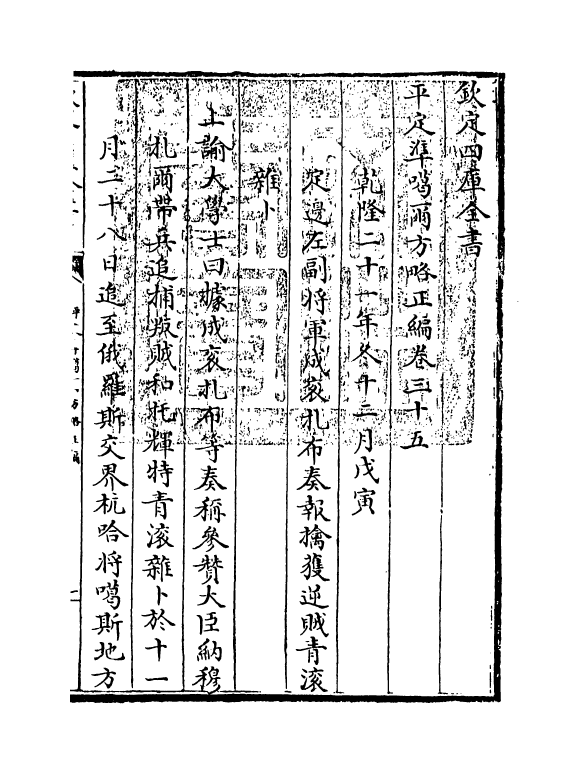 欽定四庫全書
平定準噶爾方略正編卷三十五
乾隆二十一年冬十二月戊寅
定邊左副將軍成衮扎布奏報擒獲逆賊青滚
雜卜
上諭大學士曰據成衮扎布等奏稱參贊大臣納穆
扎爾帶兵追捕叛賊和托輝特青滚雜卜於十一
月三十八日追至俄羅斯交界杭哈將噶斯地方